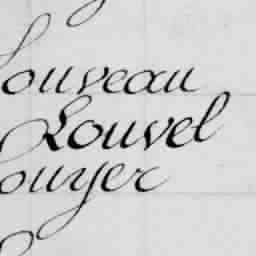 Louveau
Louvel
Louyer